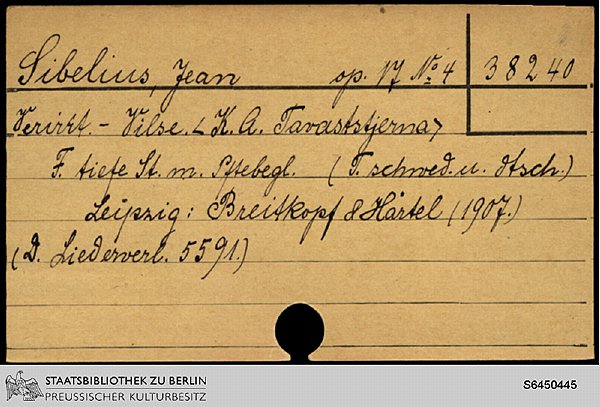 Sibelius, Jean op. 17 No. 4 38240
Verirrt. - Vilse. < K. A. Tavaststjerna >
F. tiefe St. m. Pftebegl. (T. schwed. u. dtsch.)
Leipzig: Breitkopf & Härtel (1907.)
(D. Liederverl. 5591.)
STAATSBIBLIOTHEK ZU BERLIN
PREUSSISCHER KULTURBESITZ
S6450445